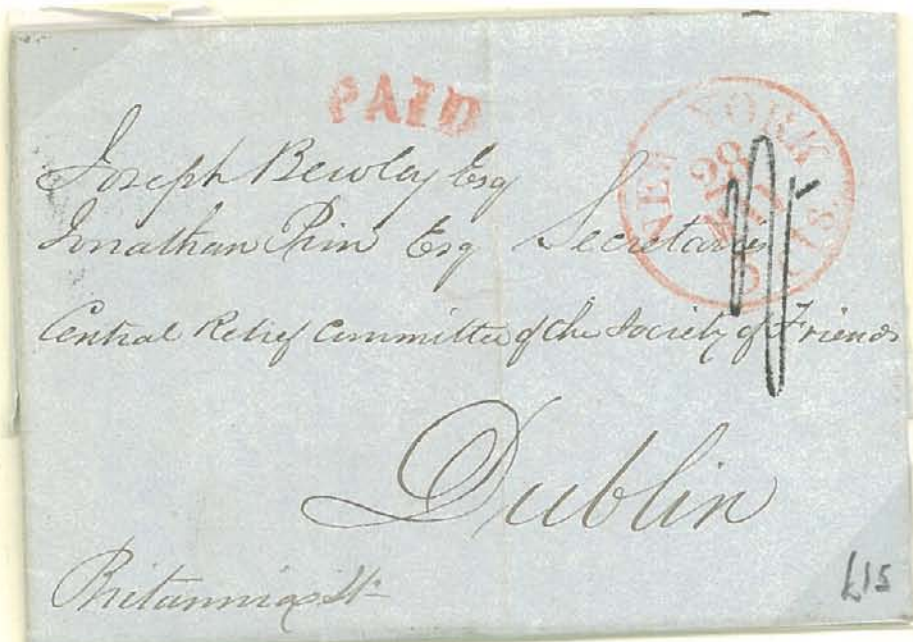 PAID
NEW YORK
28
MAY
5 cts
Joseph Bewley Esq
Jonathan Pim Esq Secretaries
Central Relief Committee of the Society of Friends
Dublin
Britannia
L15